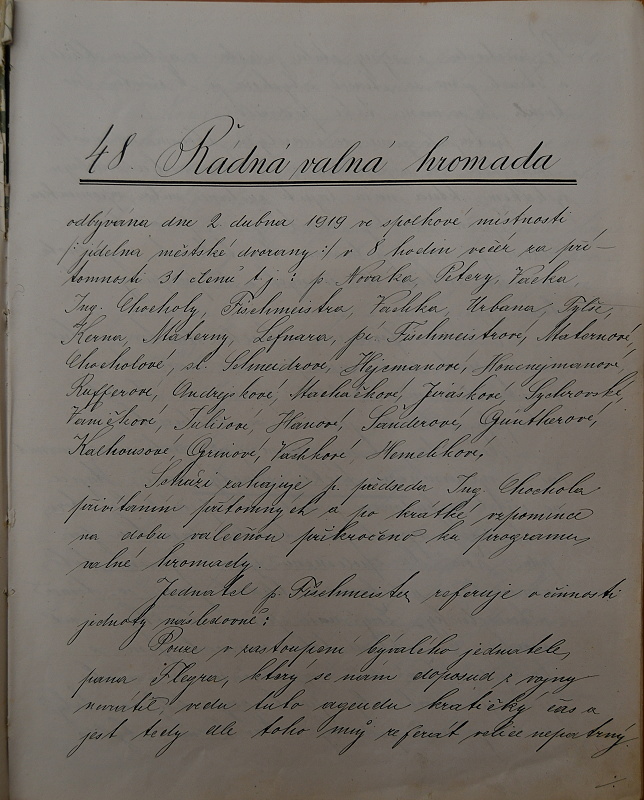 48. Řádná valná hromada
odbývána dne 2. dubna 1919 ve spolkové místnosti
/: jídelna městské dvorany :/ v 8 hodin večer za pří-
tomnosti 31 členů t. j.: p. Nováka, Petery, Vacka,
Ing. Chocholy, Fischmeistra, Vaňka, Urbana, Tylše,
Kerna, Materny, Lefnara, pí. Fischmeistrové, Maternové,
Chocholové, sl. Schneidrové, Hejcmanové, Novenejmanové,
Rufferové, Andrejskové, Macháčkové, Jiráskové, Sychrovské,
Vaníčkové, Tulišové, Hanové, Šaúderové, Güntherové,
Kalhousové, Grinové, Vaňkové, Hemelíkové,
Schůzi zahajuje p. předseda Ing. Chochola
přivítáním přítomných a po krátké vzpomínce
na dobu válečnou přikročeno ku programu
valné hromady.
Jednatel p. Fischmeister referuje o činnosti
jednoty následovně:
Pouze v zastoupení bývalého jednatele,
pana Flegra, který se nám doposud z vojny
nevrátil, vedu tuto agendu kratičký čas a
jest tedy dle toho můj referát velice nepatrný.